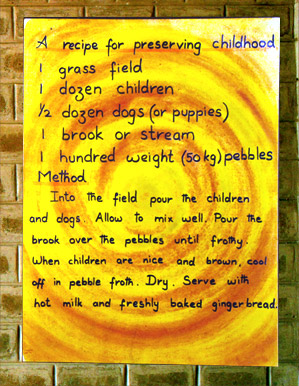 A recipe for preserving childhood
1 grass field
1 dozen children
½ dozen dogs (or puppies)
1 brook or stream
1 hundred weight (50kg) pebbles
Method
Into the field pour the children
and dogs. Allow to mix well. Pour the
brook over the pebbles until frothy.
When children are nice and brown, cool
off in pebble froth. Dry. Serve with
hot milk and freshly baked gingerbread.